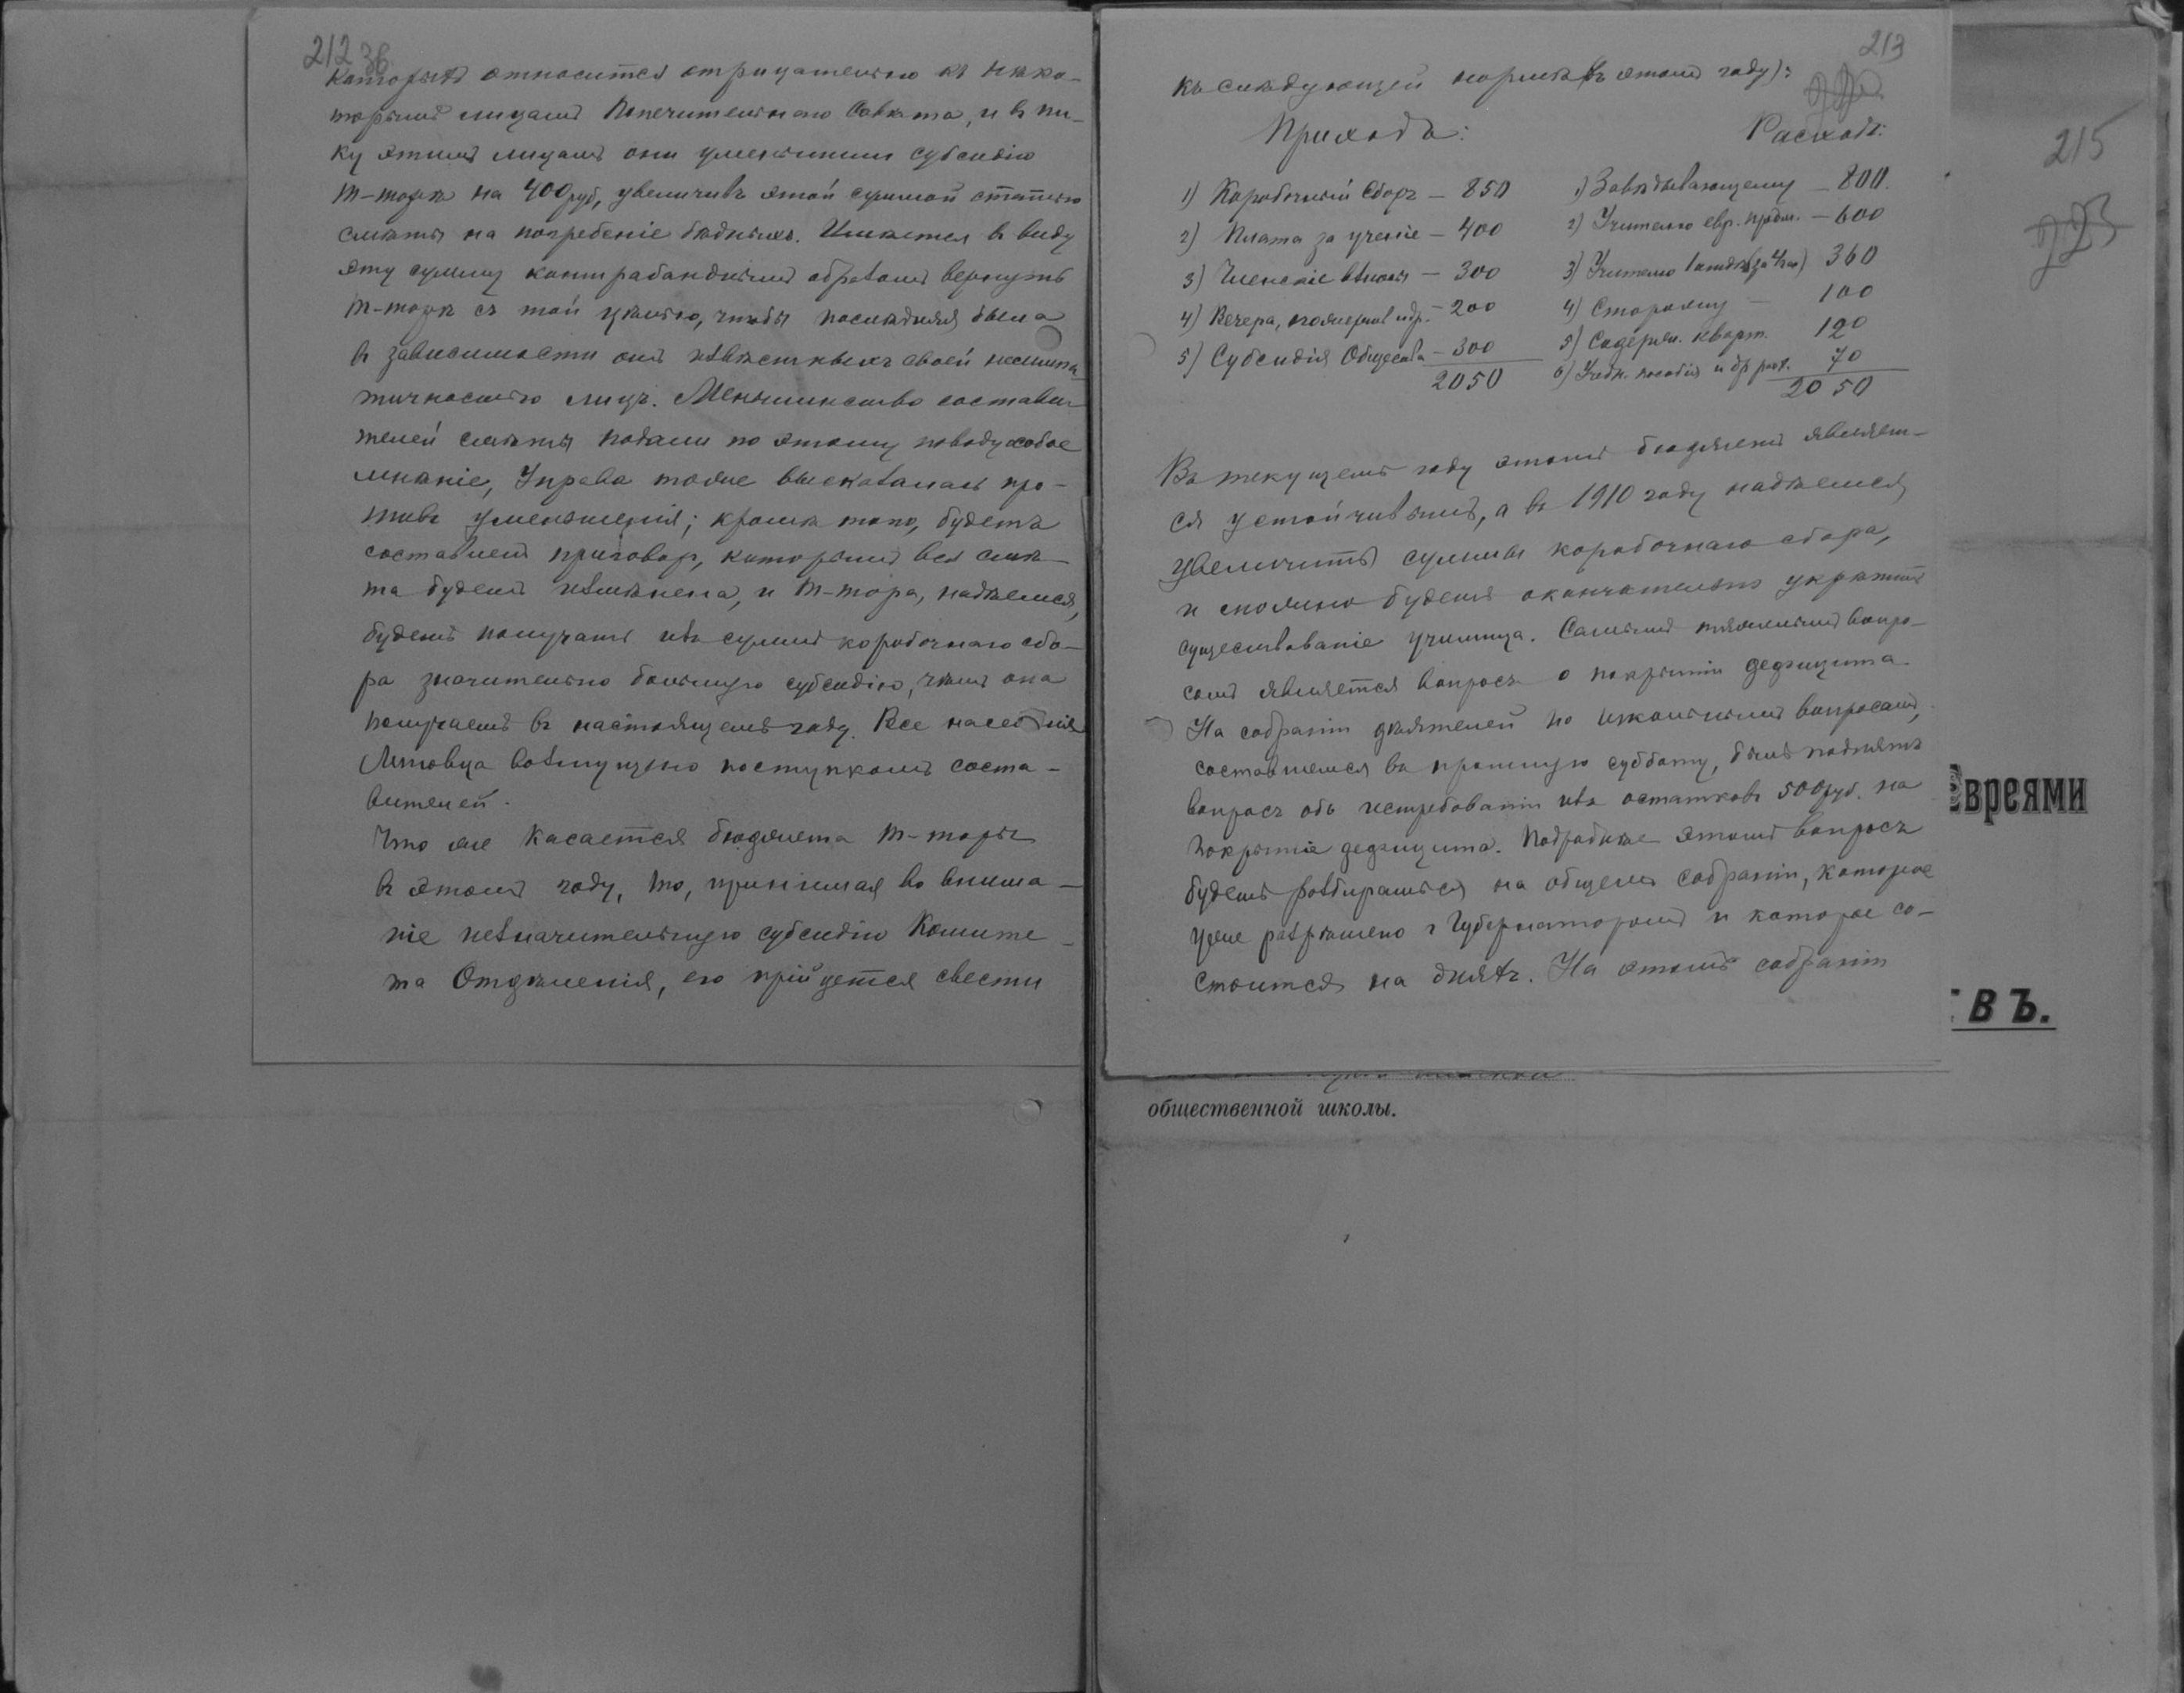 212
36
которыхъ относится отрицательно къ нѣко-
торымъ лицамъ Попечительнаго Совѣта, и въ пи-
ку этимъ лицамъ они уменьшили субсидію
Т-торѣ на 400 руб, увеличивъ этой суммой статью
смѣты на погребеніе бѣдныхъ. Имѣется въ виду
эту сумму контрабанднымъ образомъ вернуть
Т-торѣ съ той цѣлью, чтобы послѣдняя была
въ зависимости отъ извѣстныхъ своей несимпа-
тичностью лицъ. Меньшинство состави-
телей смѣты подали по этому поводу особое
мнѣніе, Управа тоже высказалась про-
тивъ уменьшенія; кромѣ того, будетъ
составленъ приговоръ, которымъ вся смѣ-
та будетъ измѣнена, и Т-тора, надѣемся,
будетъ получать изъ суммъ коробочнаго сбо-
ра значительно большую субсидію, чѣмъ она
получаетъ въ настоящемъ году. Все населеніе
Литовца возмущено поступкомъ соста-
вителей.
Что же касается бюджета Т-торы
въ этомъ году, то, принимая во внима-
ніе незначительную субсидію Комите-
та Отдѣленія, его прійдется свести
213
къ слѣдующей нормѣ (въ этомъ году):
Приходъ: Расходъ:
1) Коробочный Сборъ – 850 1) Завѣдывающему – 800.
2) Плата за ученіе – 400 2) Учителю евр. предм. – 600
3) Членскіе взносы – 300 3) Учителю 360
4) Вечера, и др. – 200 4) Сторожу – 100
5) Субсидія Общества – 300 5) Содержан. кварт. 120
2050 6) Учебн. пособія и др расх. 70
2050
Въ текущемъ году этотъ бюджетъ являет-
ся устойчивымъ, а въ 1910 году надѣемся
увеличить суммы коробочнаго сбора,
и можно будетъ окончательно укрѣпить
существованіе училища. Самымъ тяжелымъ вопро-
сомъ является вопросъ о покрытіи дефицита.
На собраніи дѣятелей по школьнымъ вопросамъ,
состоявшемся въ прошлую субботу, былъ поднятъ
вопросъ объ истребованіи изъ остатковъ 500 руб. на
покрытіе дефицита. Подробнѣе этотъ вопросъ
будетъ разбираться на общемъ собраніи, которое
уже разрѣшено г Губернаторомъ и которое со-
стоится на дняхъ. На этомъ собраніи
215
евреями
ВЪ.
общественной школы.